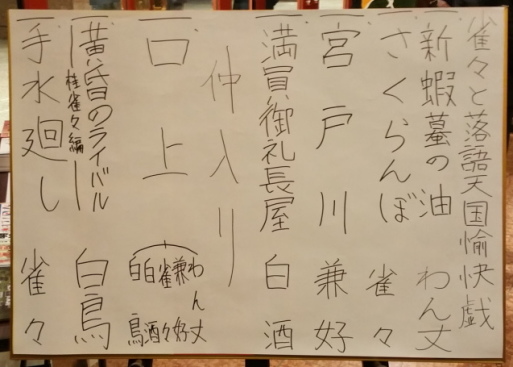 雀々と落語天国愉快戯
一、新蝦蟇の油 わん丈
一、さくらんぼ 雀々
一、宮戸川 兼好
一、満員御礼長屋 白酒
仲入り
一、口上 わん丈 兼好 雀々 白酒 白鳥
一、黄昏のライバル 白鳥
―桂雀々編―
一、手水廻し 雀々